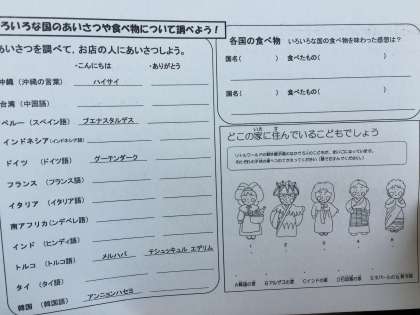 ろいろな国のあいさつや食べ物について調べよう！
あいさつを調べて、お店の人にあいさつしよう。
・こんにちは ・ありがとう
沖縄（沖縄の言葉） ハイサイ
台湾（中国語）
ペルー（スペイン語） ブエナスタルデス
インドネシア（インドネシア語）
ドイツ（ドイツ語） グーテンダーク
フランス（フランス語）
イタリア（イタリア語）
南アフリカ（ンデベレ語）
インド（ヒンディ語）
トルコ（トルコ語） メルハバ テシュッキュル エデリム
タイ（タイ語）
韓国（韓国語） アンニョンハセヨ
各国の食べ物 いろいろな国の食べ物を味わった感想は？
国名（ ） 食べたもの（ ）
国名（ ） 食べたもの（ ）
どこの家に住んでいるこどもでしょう
1 2 3 4 5